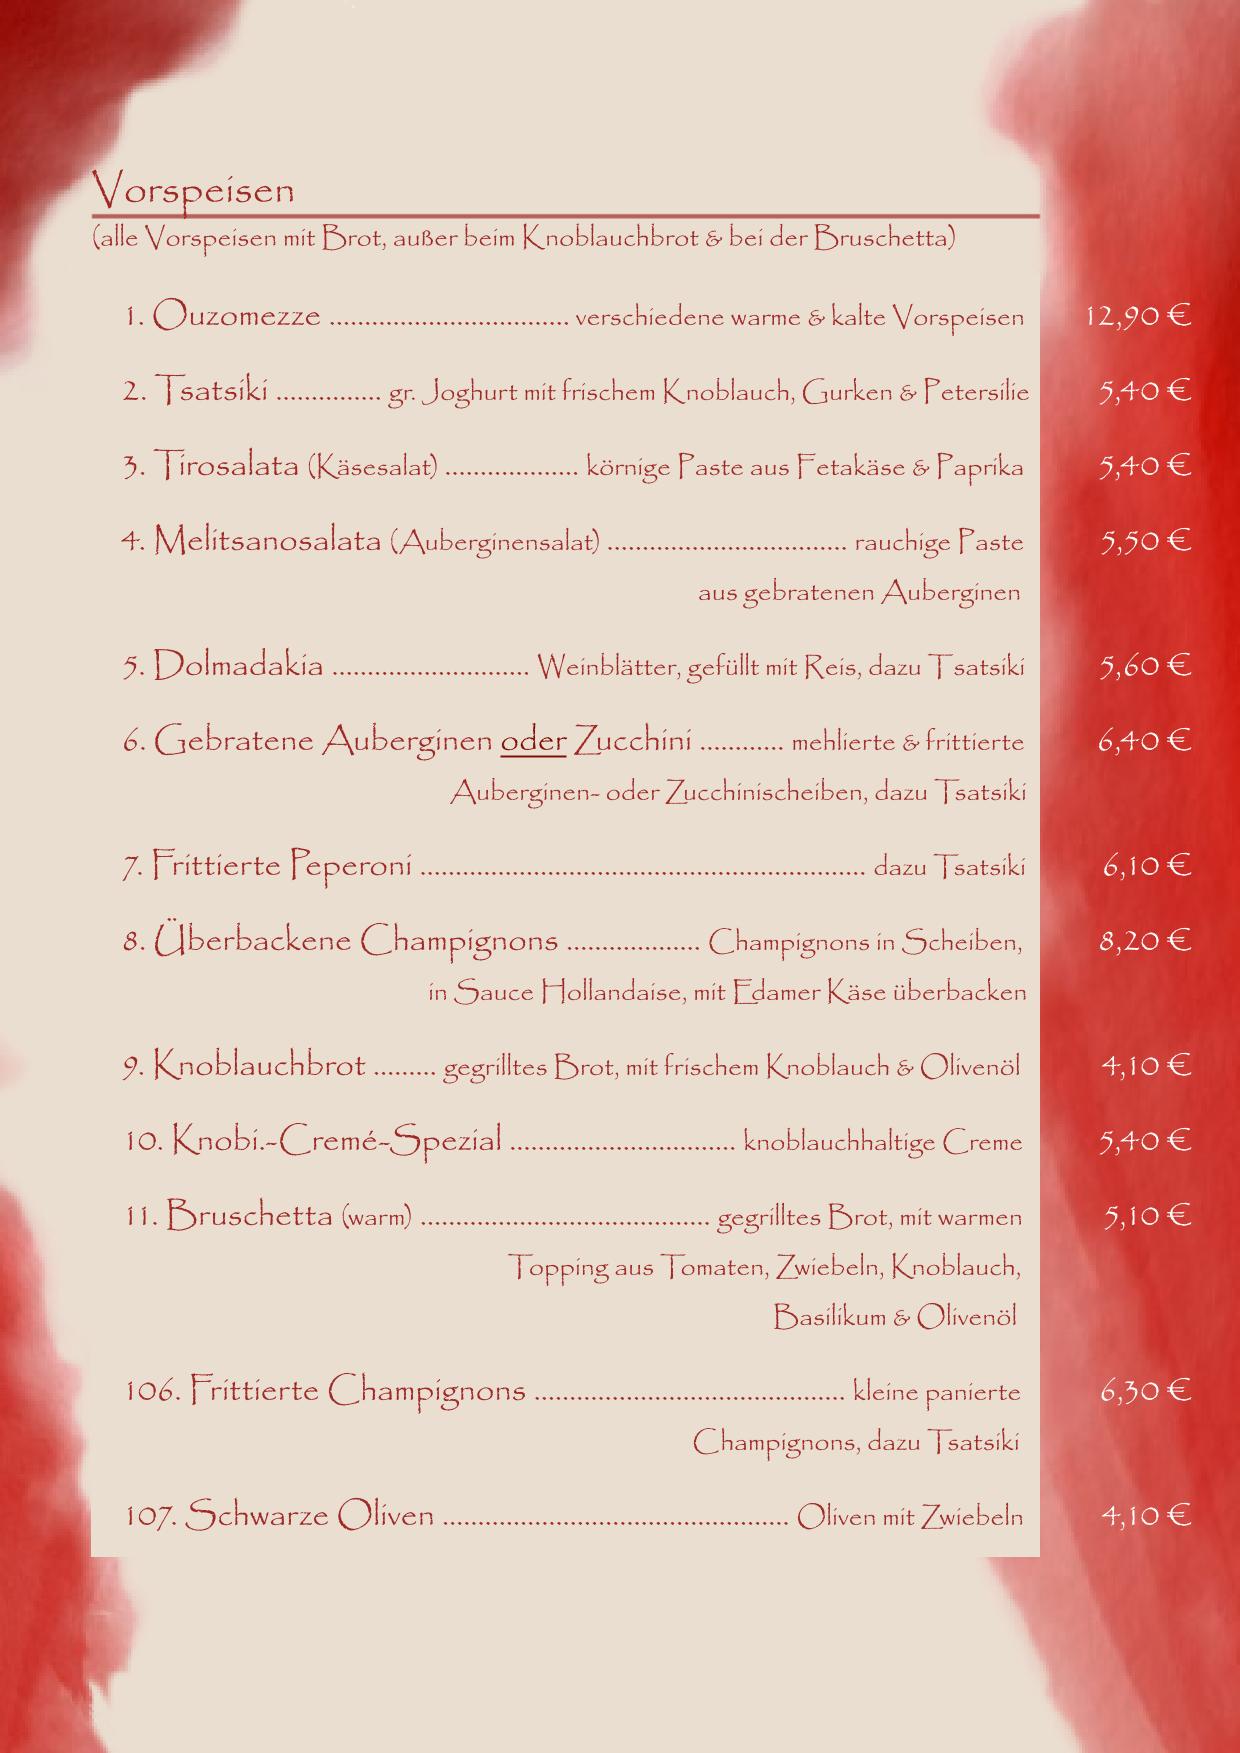 Vorspeisen
(alle Vorspeisen mit Brot, außer beim Knoblauchbrot & bei der Bruschetta)
1. Ouzomezze .................................. verschiedene warme & kalte Vorspeisen 12,90 €
2. Tsatsiki ............... gr. Joghurt mit frischem Knoblauch, Gurken & Petersilie 5,40 €
3. Tirosalata (Käsesalat) ................... körnige Paste aus Fetakäse & Paprika 5,40 €
4. Melitsanosalata (Auberginensalat) .................................. rauchige Paste 5,50 €
aus gebratenen Auberginen
5. Dolmadakia ............................ Weinblätter, gefüllt mit Reis, dazu Tsatsiki 5,60 €
6. Gebratene Auberginen oder Zucchini ............ mehlierte & frittierte 6,40 €
Auberginen- oder Zucchinischeiben, dazu Tsatsiki
7. Frittierte Peperoni ............................................................... dazu Tsatsiki 6,10 €
8. Überbackene Champignons ................... Champignons in Scheiben, 8,20 €
in Sauce Hollandaise, mit Edamer Käse überbacken
9. Knoblauchbrot ......... gegrilltes Brot, mit frischem Knoblauch & Olivenöl 4,10 €
10. Knobi.-Cremé-Spezial ................................ knoblauchhaltige Creme 5,40 €
11. Bruschetta (warm) ......................................... gegrilltes Brot, mit warmen 5,10 €
Topping aus Tomaten, Zwiebeln, Knoblauch,
Basilikum & Olivenöl
106. Frittierte Champignons ............................................ kleine panierte 6,30 €
Champignons, dazu Tsatsiki
107. Schwarze Oliven ................................................. Oliven mit Zwiebeln 4,10 €